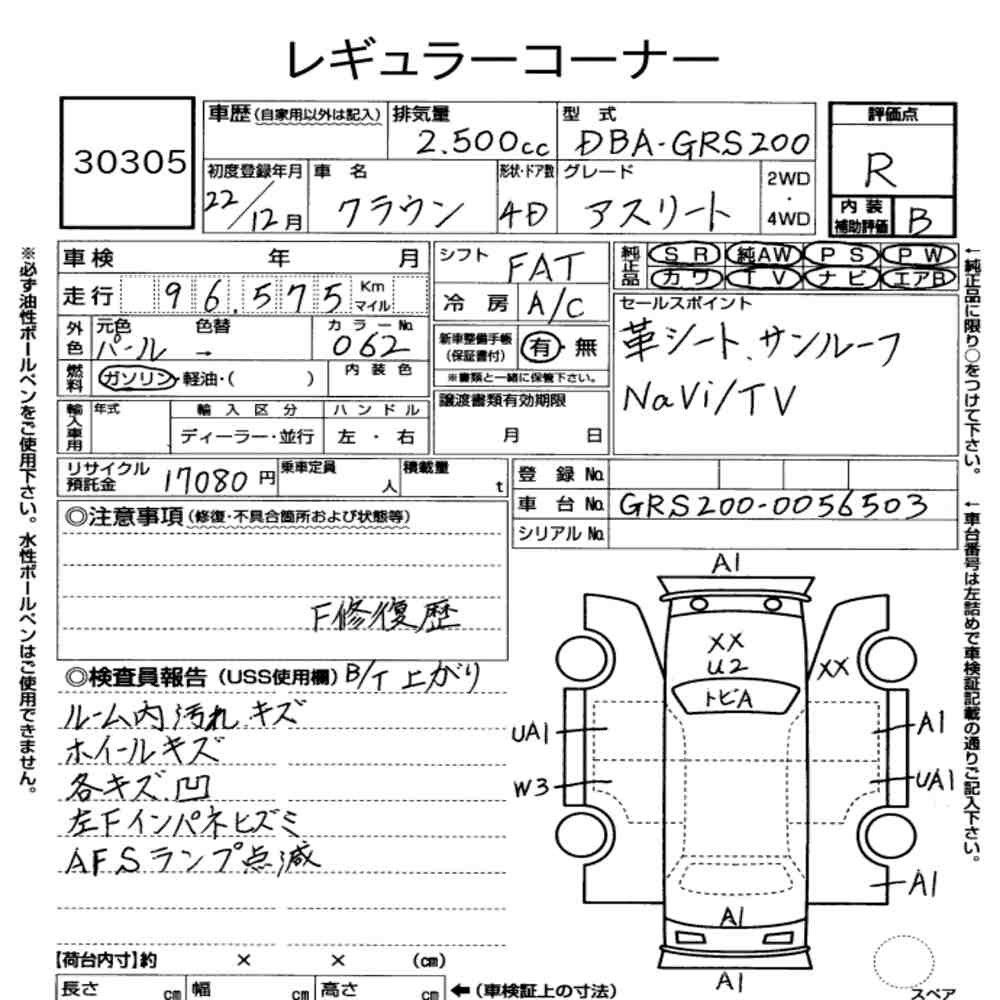 レギュラーコーナー
30305
車歴 (自家用以外は記入)
排気量
2.500cc
型 式
DBA-GRS200
評価点
R
内装補助評価 B
初度登録年月
22/12月
車 名
クラウン
形状・ドア数
4D
グレード
アスリート
2WD
・
4WD
車検 年 月
シフト FAT
純正品 SR 純AW PS PW
カワ TV ナビ エアB
走行 96.575 Km マイル
冷房 A/C
セールスポイント
革シート、サンルーフ
NaVi/TV
外色 元色 色替 カラーNo.
パール → 062
新車整備手帳(保証書付) 有・無
※書類と一緒に保管下さい。
燃料 ガソリン・軽油・( )
内装色
譲渡書類有効期限
月 日
輸入車用 年式 輸入区分 ハンドル
ディーラー・並行 左・右
リサイクル預託金 17080円
乗車定員 人
積載量 t
登録 No.
車台 No. GRS200-0056503
シリアル No.
◎注意事項 (修復・不具合箇所および状態等)
F修復歴
◎検査員報告 (USS使用欄) B/T 上がり
ルーム内汚れ.キズ
ホイールキズ
各キズ.凹
左Fインパネヒズミ
AFSランプ点滅
A1
XX
U2
XX
トビA
UA1
A1
W3
UA1
A1
A1
A1
スペア
【荷台内寸】約 × × (cm)
長さ cm 幅 cm 高さ cm ←(車検証上の寸法)
※必ず油性ボールペンをご使用下さい。水性ボールペンはご使用できません。
←純正品に限り○をつけて下さい。
←車台番号は左詰めで車検証記載の通りご記入下さい。